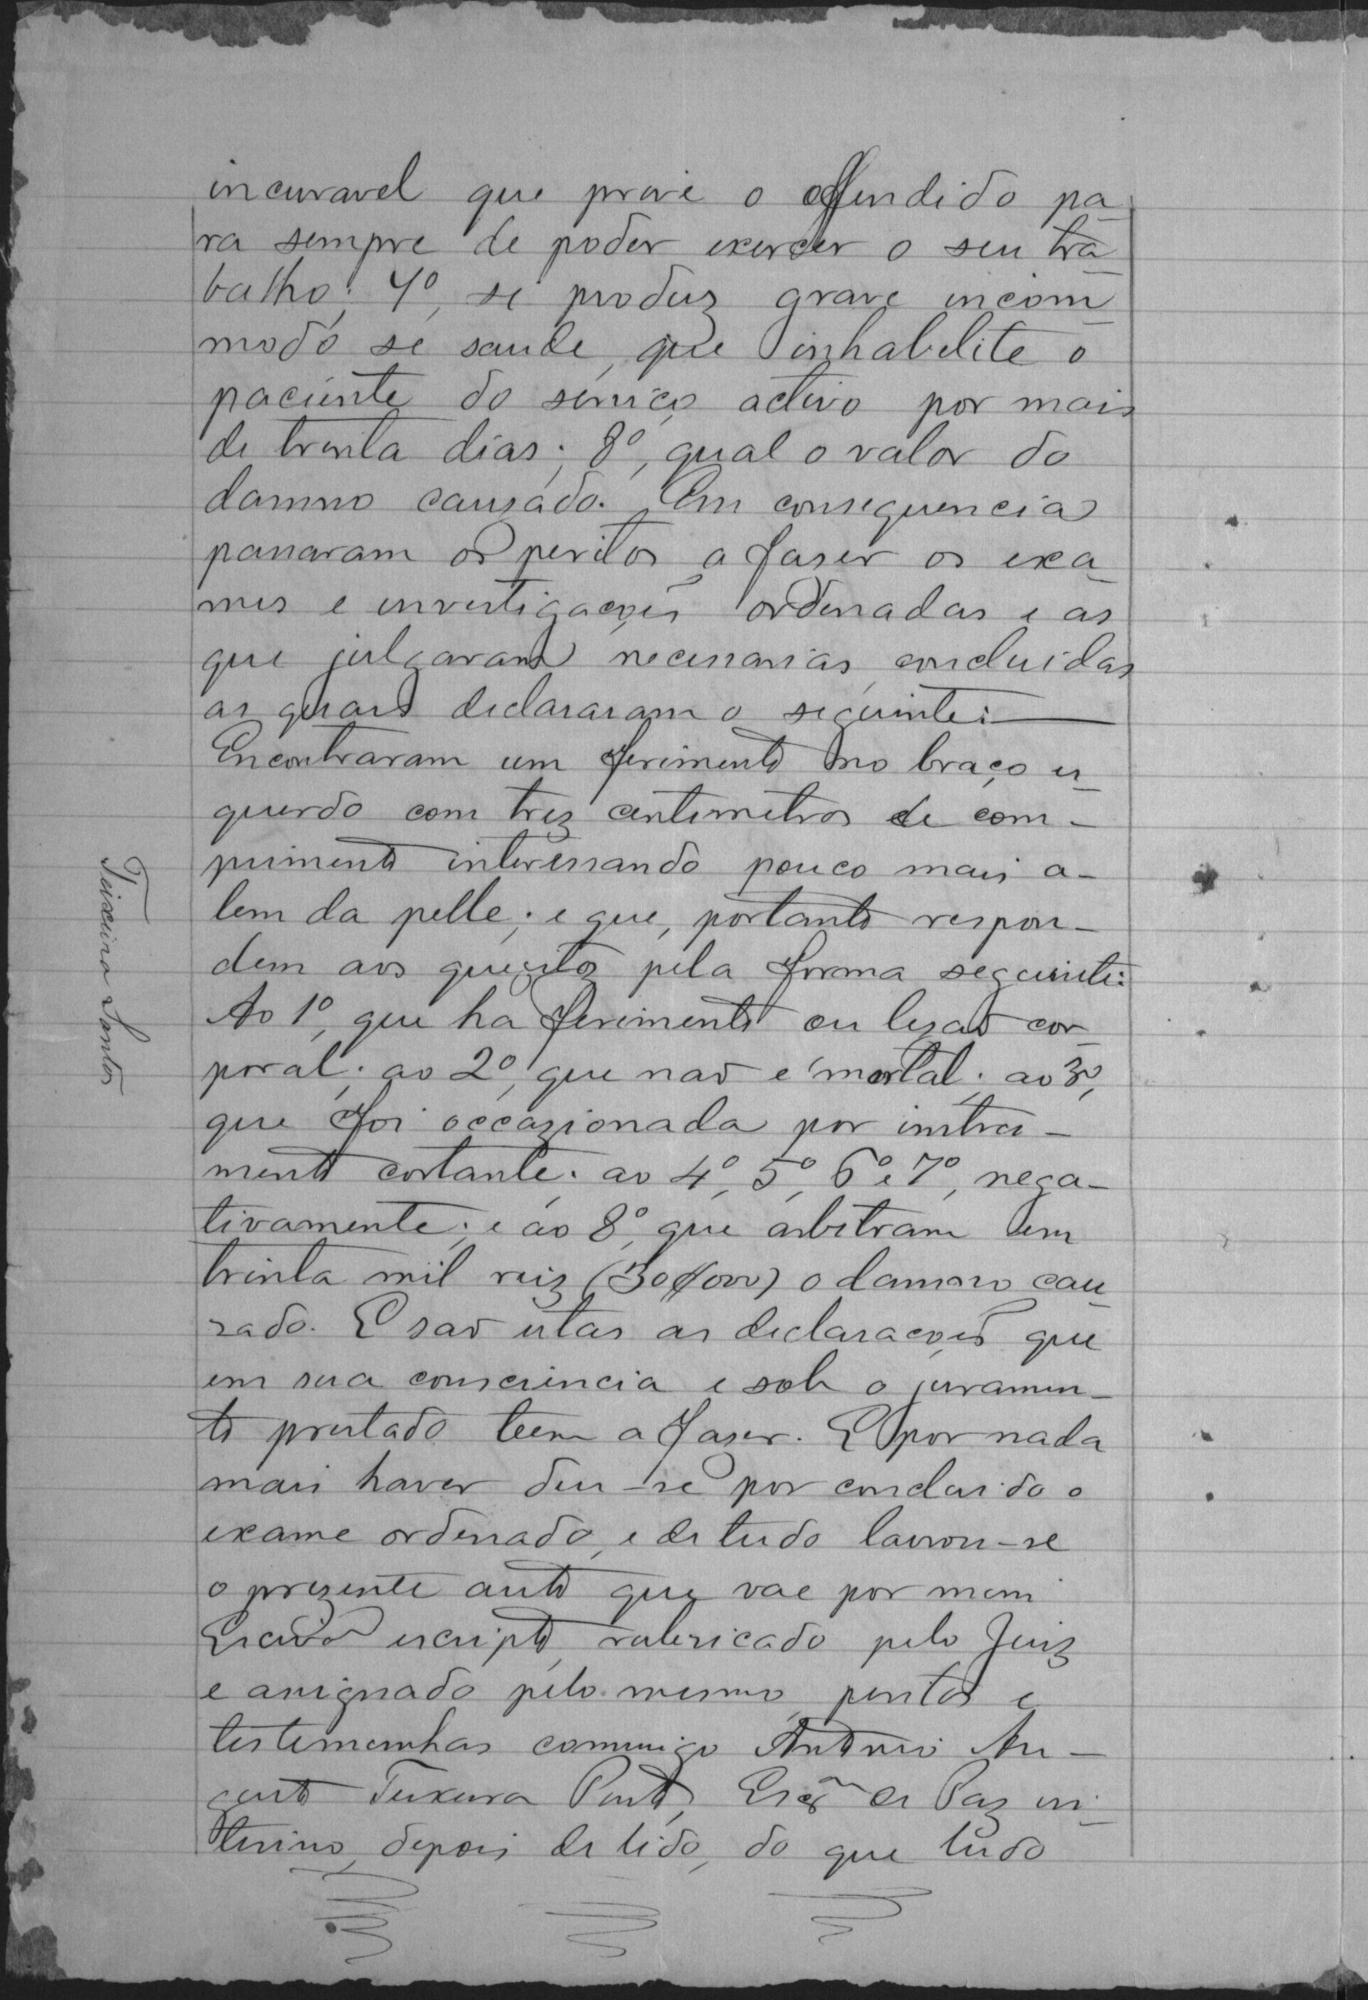 incuravel que prive o offendido pa-
ra sempre de poder exercer o seu tra-
balho; 7º, se produz grave incom-
modo de saude, que inhabelite o
paciente do serviço activo por mais
de trinta dias; 8º, qual o valor do
damno causado. Em consequencia
passaram os peritos a faser os exa-
mes e investigações ordenadas e as
que julgaram necessarias, concluidas
as quaes declararam o seguinte:
Encontraram um ferimento no braço es-
querdo com trez centimetros de com-
primento interessando pouco mais a-
lem da pelle; e que, portanto respon-
dem aos quezitos pela forma seguinte:
Ao 1º, que ha ferimento ou lezão cor-
poral; ao 2º, que não é mortal; ao 3º,
que foi occazionada por instru-
mento cortante; ao 4º, 5º, 6º e 7º, nega-
tivamente; e ao 8º, que arbitram em
trinta mil reiz (30$000) o damno cau-
sado. E são estas as declarações que
em sua consciencia e sob o juramen-
to prestado teem a faser. E por nada
mais haver deu-se por concluido o
exame ordenado, e de tudo lavrou-se
o prezente auto que vae por mim
Escrivão escripto, rubricado pelo Juiz
e assignado pelo mesmo, peritos e
testemunhas commigo Antonio Au-
gusto Teixeira Pinto, Escm de Paz in-
terino, depois de lido, do que tudo
Teixeira Santos